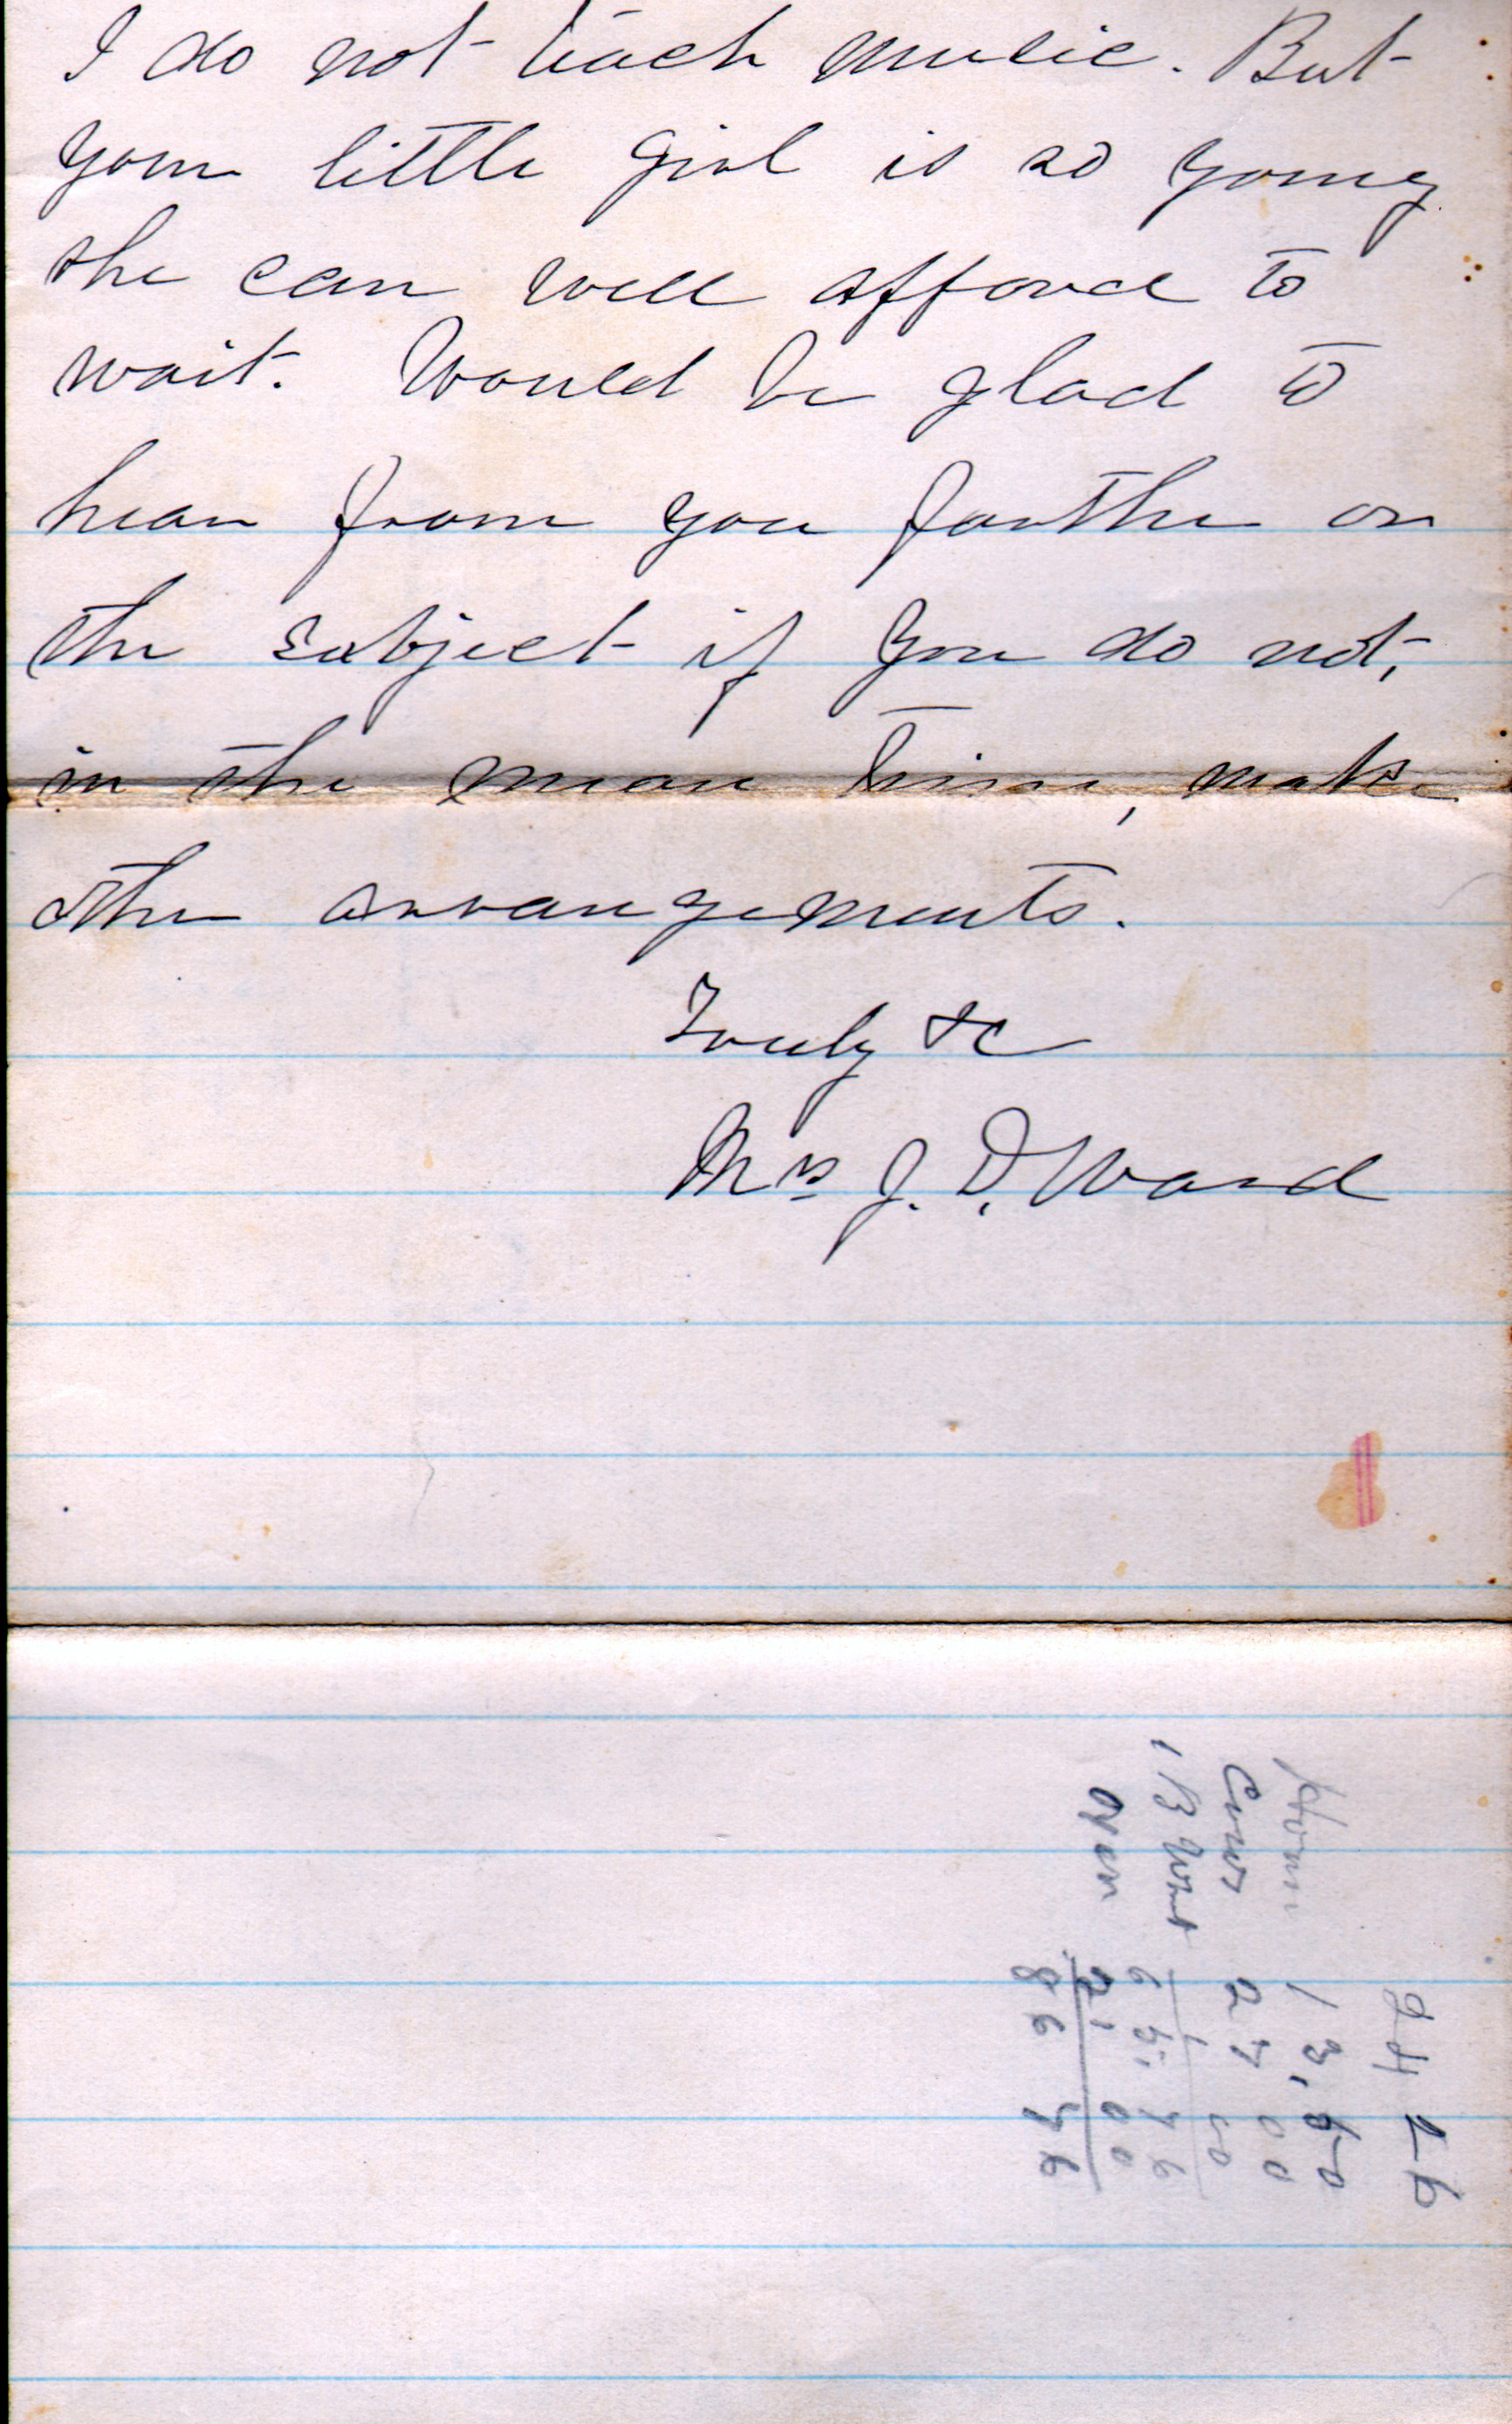 I do not teach music. But
your little girl is so young
she can well afford to
wait. Would be glad to
hear from you farther on
the subject if you do not,
in the mean time, make
other arrangements.
Truly &c
Mrs J. D. Ward
24 26
13,50
Cows 27 00
65,76
Oxen 21,00
86 76